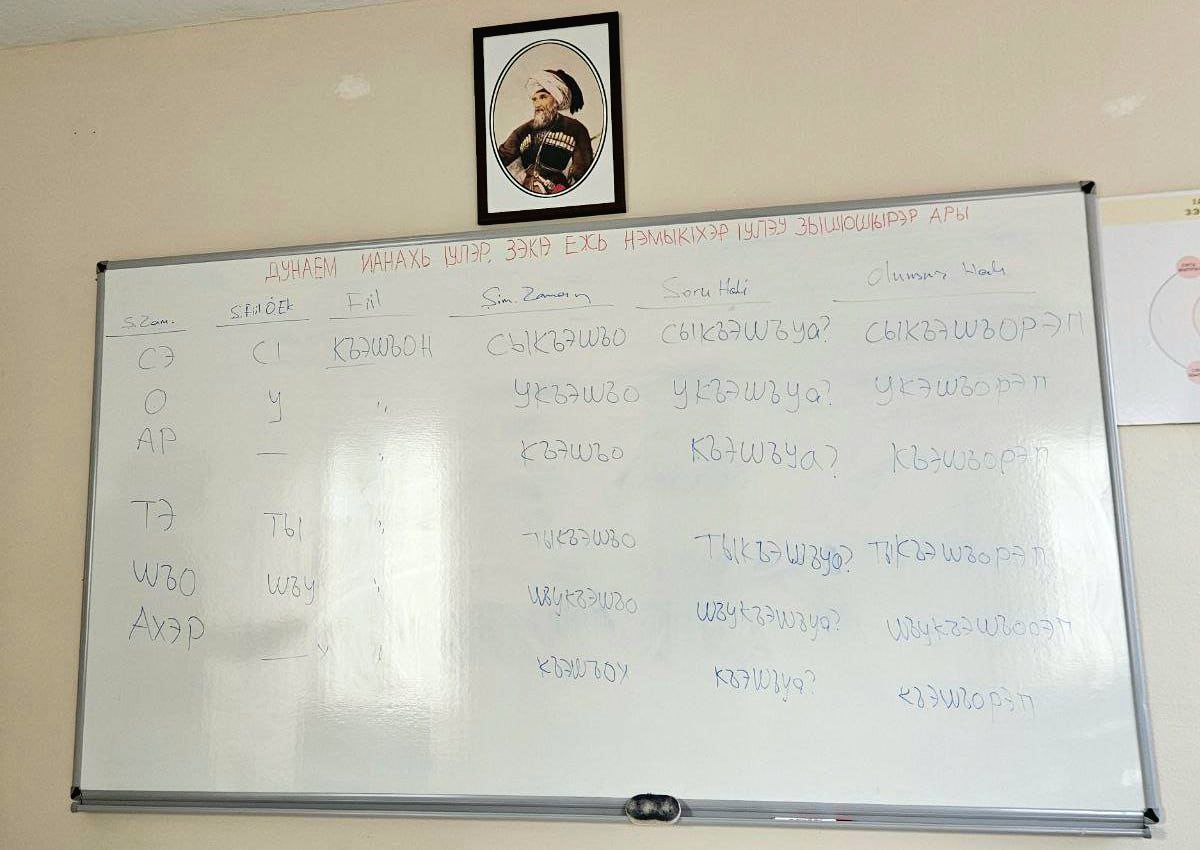 ДУНАЕМ ИАНАХЬ ІУЛЭР, ЗЭКІЭ ЕЖЬ НЭМЫКІХЭР ІУЛЭУ ЗЫШІОШЫРЭР АРЫ
Ş.Zam. Ş.Fiil Ö.Ek Fiil Şim. Zamanı Soru Hali Olumsuz Hali
СЭ СІ КЪЭШЪОН СЫКЪЭШЪО СЫКЪЭШЪУА? СЫКЪЭШЪОРЭП
О У " УКЪЭШЪО УКЪЭШЪУА? УКЭШЪОРЭП
АР — " КЪЭШЪО КЪЭШЪУА? КЪЭШЪОРЭП
ТЭ ТЫ " ТЫКЪЭШЪО ТЫКЪЭШЪУА? ТЫКЪЭШЪОРЭП
ШЪО ШЪУ " ШЪУКЪЭШЪО ШЪУКЪЭШЪУА? ШЪУКЪЭШЪОРЭП
АХЭР — У " КЪЭШЪОХ КЪЭШЪУА? КЪЭШЪОРЭП